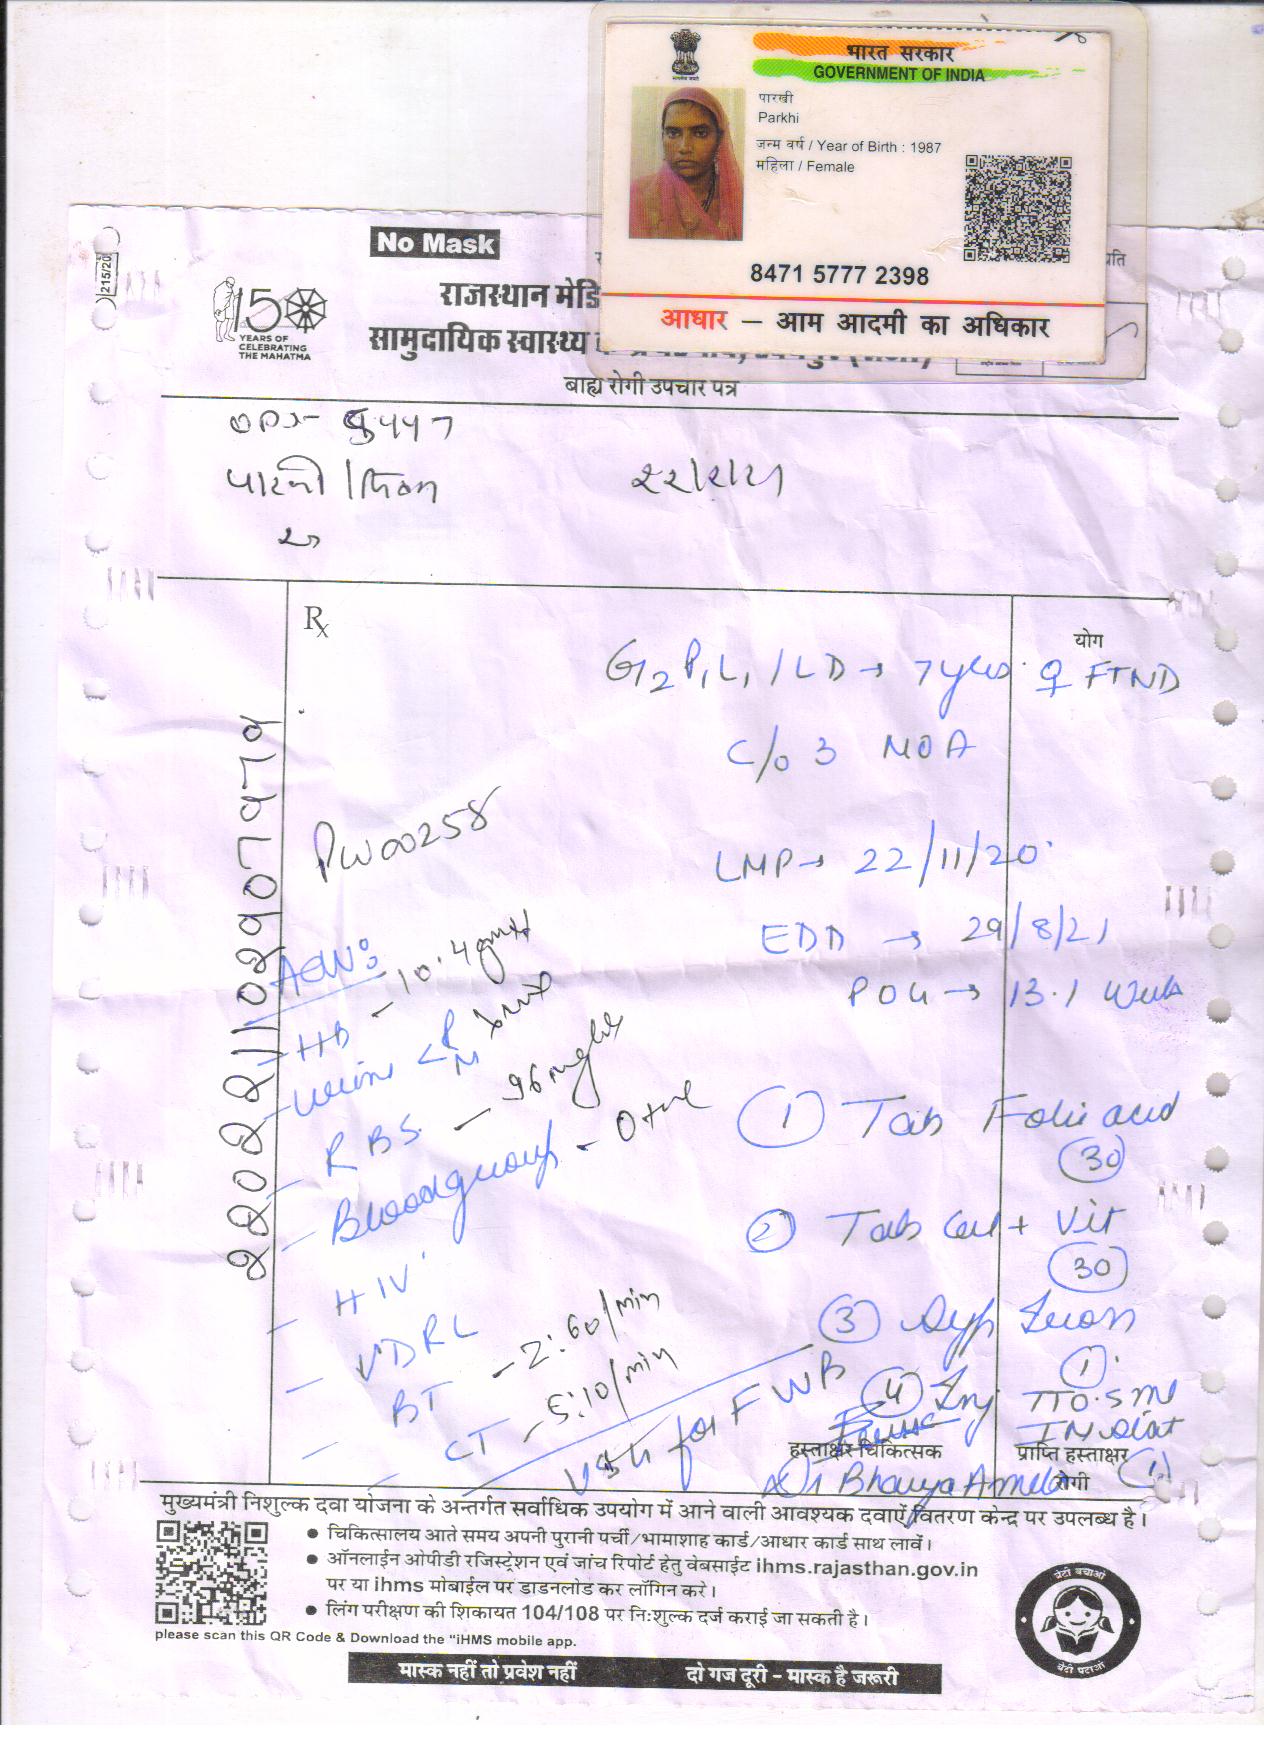 भारत सरकार
GOVERNMENT OF INDIA
पारखी
Parkhi
जन्म वर्ष / Year of Birth : 1987
महिला / Female
8471 5777 2398
आधार – आम आदमी का अधिकार
215/20
No Mask
प्रति
150
YEARS OF
CELEBRATING
THE MAHATMA
राजस्थान मेडि
सामुदायिक स्वास्थ्य
बाह्य रोगी उपचार पत्र
Rx
योग
G2P1L1 / LD → 7 yrs ♀ FTND
C/o 3 MOA
PW00258
LMP → 22/11/20
EDD → 29/8/21
POG → 13.1 Week
HB - 10.4 gm
Urine
RBS - 96 mg
Blood group - O +ve
HIV
VDRL
BT - 2:60/min
CT - 5:10/min
USG for FWB
① Tab Folic acid
30
② Tab Cal + Vit
30
③ Syp Iron
1
④ Inj TT 0.5 ml
IM stat
1
हस्ताक्षर चिकित्सक
प्राप्ति हस्ताक्षर
रोगी
मुख्यमंत्री निशुल्क दवा योजना के अन्तर्गत सर्वाधिक उपयोग में आने वाली आवश्यक दवाऐं वितरण केन्द्र पर उपलब्ध है।
● चिकित्सालय आते समय अपनी पुरानी पर्ची/भामाशाह कार्ड/आधार कार्ड साथ लावें।
● ऑनलाईन ओपीडी रजिस्ट्रेशन एवं जांच रिपोर्ट हेतु वेबसाईट ihms.rajasthan.gov.in
पर या ihms मोबाईल पर डाडनलोड कर लॉगिन करे।
● लिंग परीक्षण की शिकायत 104/108 पर नि:शुल्क दर्ज कराई जा सकती है।
please scan this QR Code & Download the "iHMS mobile app.
बेटी बचाओ
बेटी पढाओ
मास्क नहीं तो प्रवेश नहीं दो गज दूरी – मास्क है जरूरी